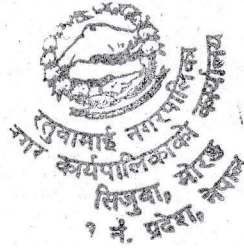 रतुवामाई नगरपालिका
नगर कार्यपालिकाको कार्यालय
सिजुवा, मोरङ
१ नं. प्रदेश, नेपाल